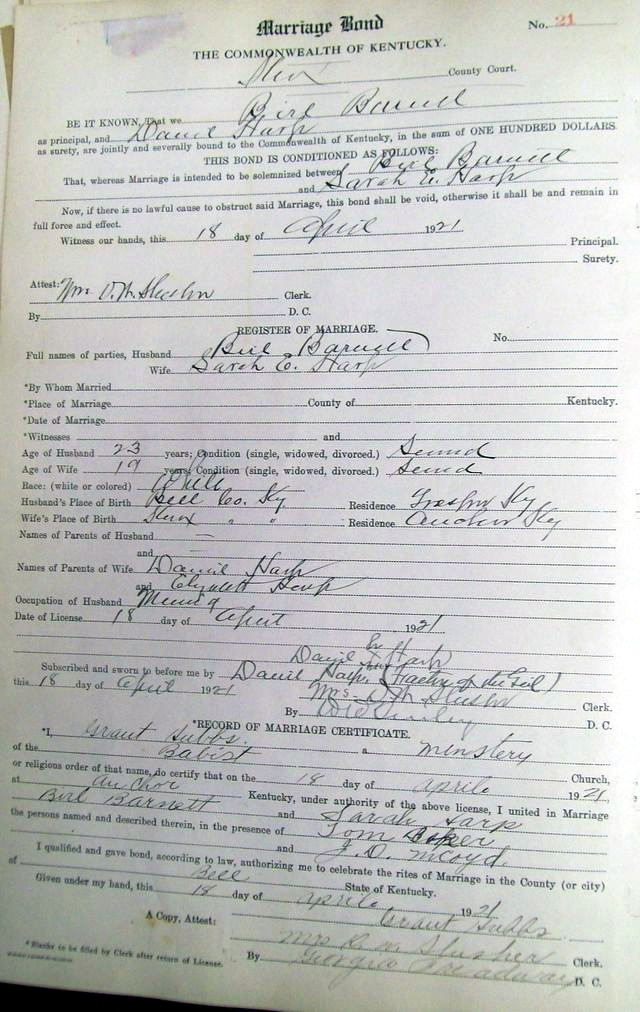 Marriage Bond
No. 21
THE COMMONWEALTH OF KENTUCKY.
County Court.
BE IT KNOWN, That we
as principal, and Daniel Harp
as surety, are jointly and severally bound to the Commonwealth of Kentucky, in the sum of ONE HUNDRED DOLLARS
THIS BOND IS CONDITIONED AS FOLLOWS:
That, whereas Marriage is intended to be solemnized between
and Sarah E. Harp
Now, if there is no lawful cause to obstruct said Marriage, this bond shall be void, otherwise it shall be and remain in
full force and effect.
Witness our hands, this 18 day of April 1921
Principal.
Surety.
Attest: Clerk.
By D. C.
REGISTER OF MARRIAGE.
No.
Full names of parties, Husband
Wife Sarah E. Harp
*By Whom Married
*Place of Marriage County of Kentucky.
*Date of Marriage
*Witnesses and
Age of Husband 23 years; Condition (single, widowed, divorced.)
Age of Wife 19 years; Condition (single, widowed, divorced.)
Race: (white or colored) White
Husband's Place of Birth Bell Co. Ky Residence Ky
Wife's Place of Birth " " Residence Ky
Names of Parents of Husband —
and —
Names of Parents of Wife Daniel Harp
and Harp
Occupation of Husband
Date of License 18 day of April 1921
Daniel Harp
Subscribed and sworn to before me by Daniel Harp (Father of the Girl)
this 18 day of April 1921 Mrs. Clerk.
By D. C.
*RECORD OF MARRIAGE CERTIFICATE.
*I, Grant Hubbs a minstery
of the Babist Church,
or religious order of that name, do certify that on the 18 day of aprile 1921,
at anchor Kentucky, under authority of the above license, I united in Marriage
Birl Barnett and Sarah Harp
the persons named and described therein, in the presence of Tom
and J.D. mcoyd
I qualified and gave bond, according to law, authorizing me to celebrate the rites of Marriage in the County (or city)
of Bell State of Kentucky.
Given under my hand, this 18 day of aprile 1921
Grant Hubbs
A Copy, Attest: Mrs Slusher Clerk.
By Georgia D. C.
*Blanks to be filled by Clerk after return of License.